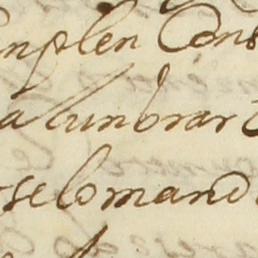 mplen Cons
alunbrar
selomando